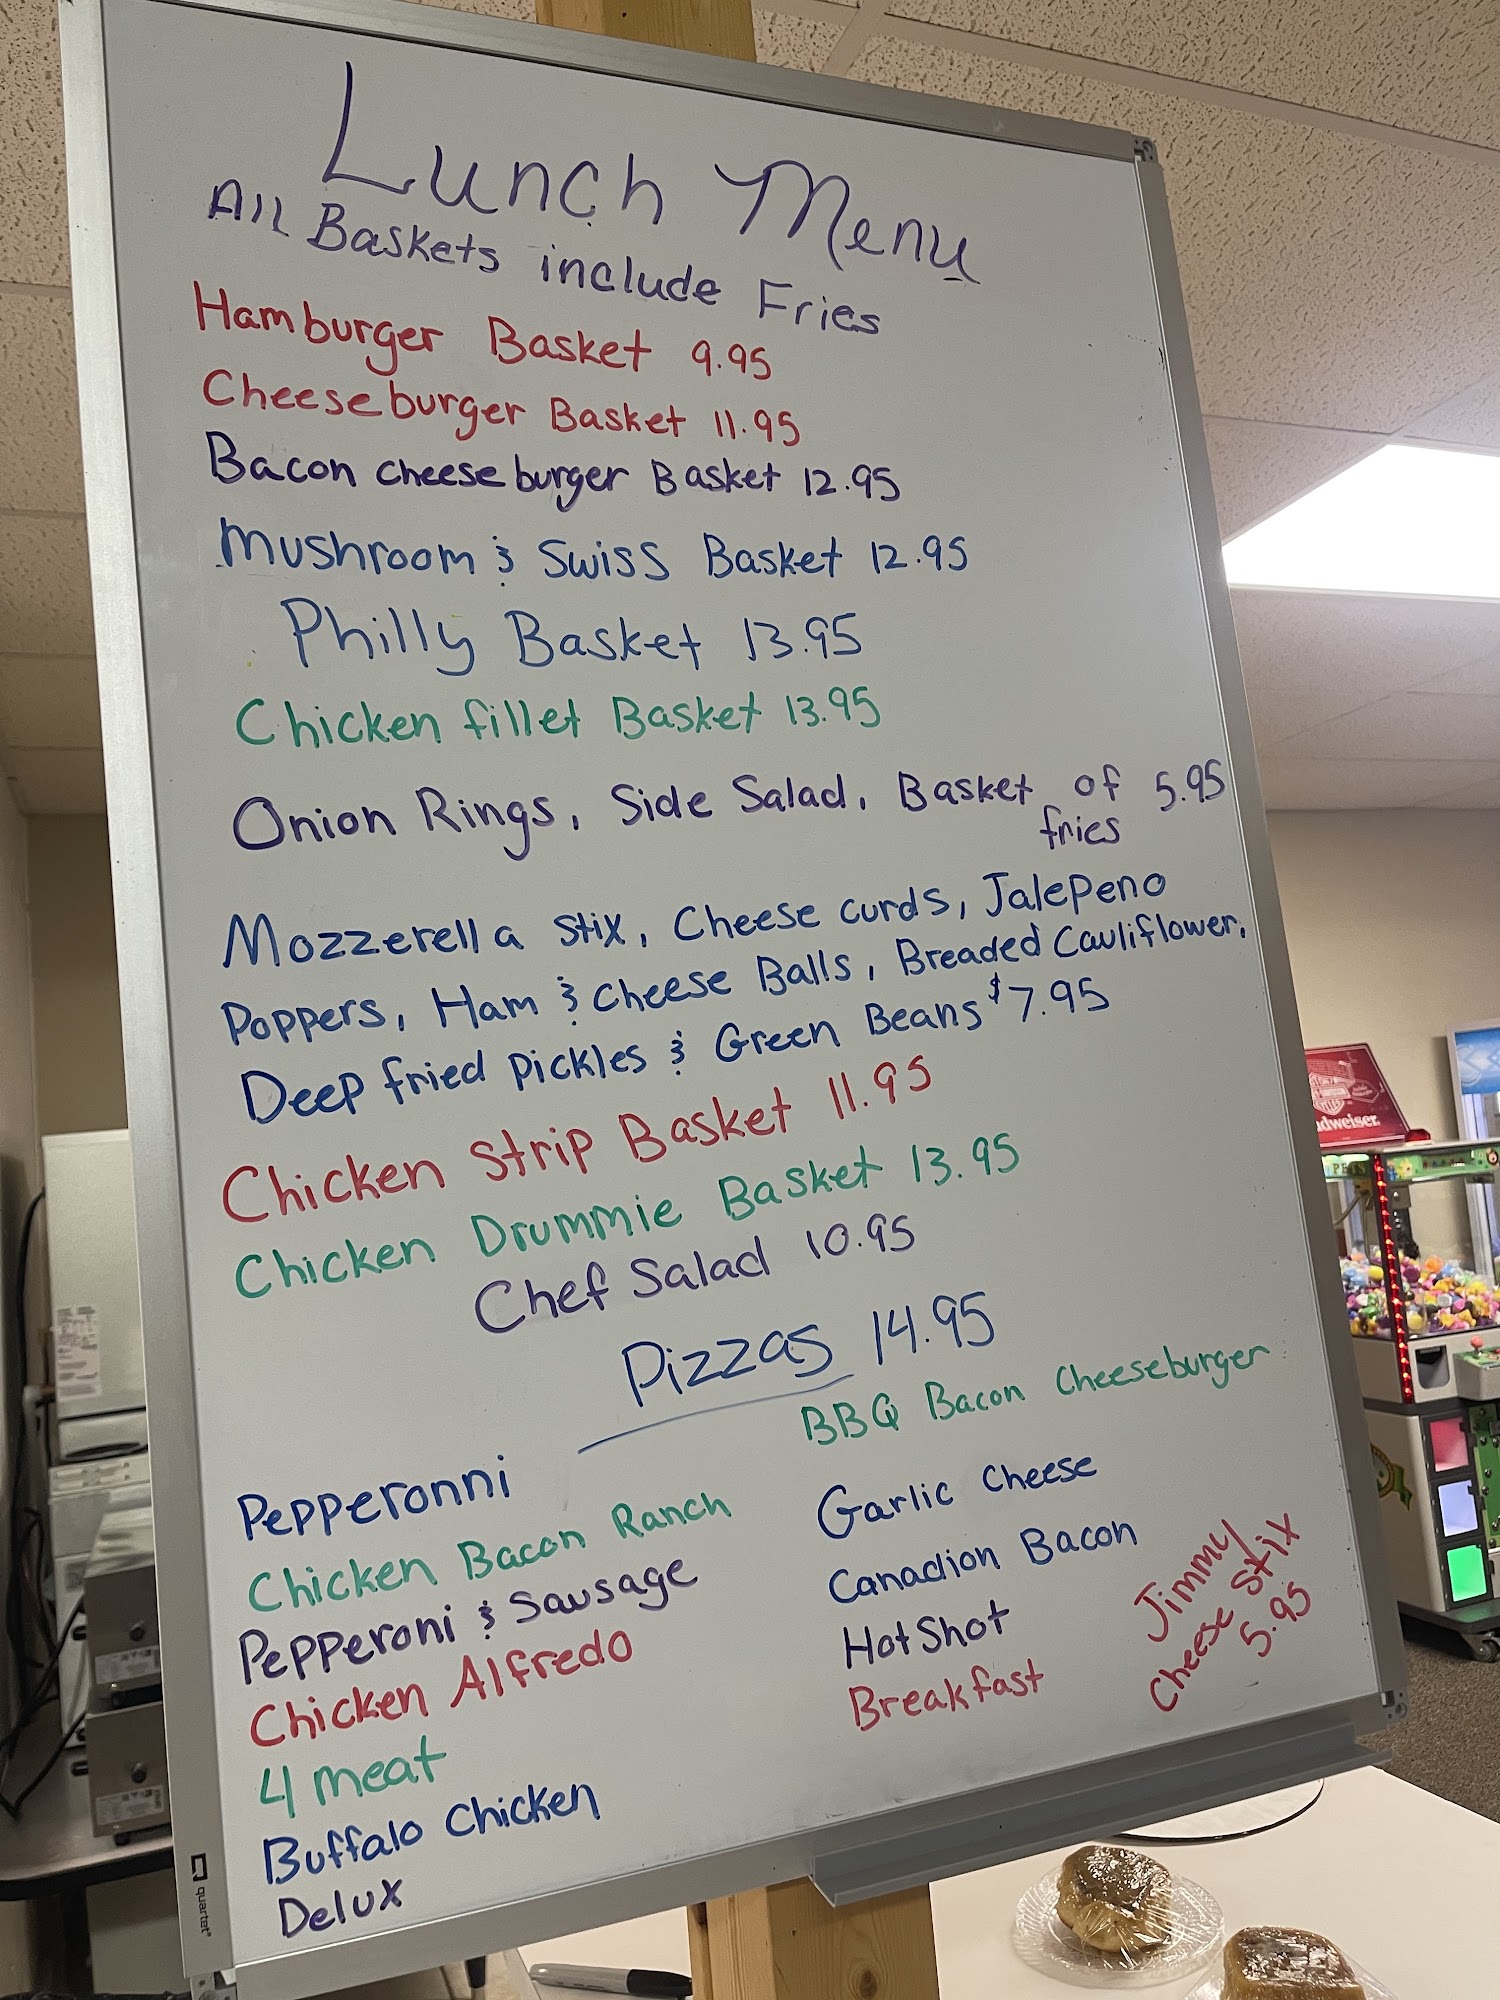 Lunch Menu
All Baskets include Fries
Hamburger Basket 9.95
Cheeseburger Basket 11.95
Bacon cheeseburger Basket 12.95
Mushroom & Swiss Basket 12.95
Philly Basket 13.95
Chicken fillet Basket 13.95
Onion Rings, Side Salad, Basket of 5.95
fries
Mozzerella Stix, Cheese curds, Jalepeno
Poppers, Ham & cheese Balls, Breaded Cauliflower,
Deep fried pickles & Green Beans $7.95
Chicken Strip Basket 11.95
Chicken Drummie Basket 13.95
Chef Salad 10.95
Pizzas 14.95
Pepperonni
Chicken Bacon Ranch
Pepperoni & Sausage
Chicken Alfredo
4 meat
Buffalo Chicken
Delux
BBQ Bacon Cheeseburger
Garlic Cheese
Canadion Bacon
Hot Shot
Breakfast
Jimmy
Cheese Stix
5.95
quartet